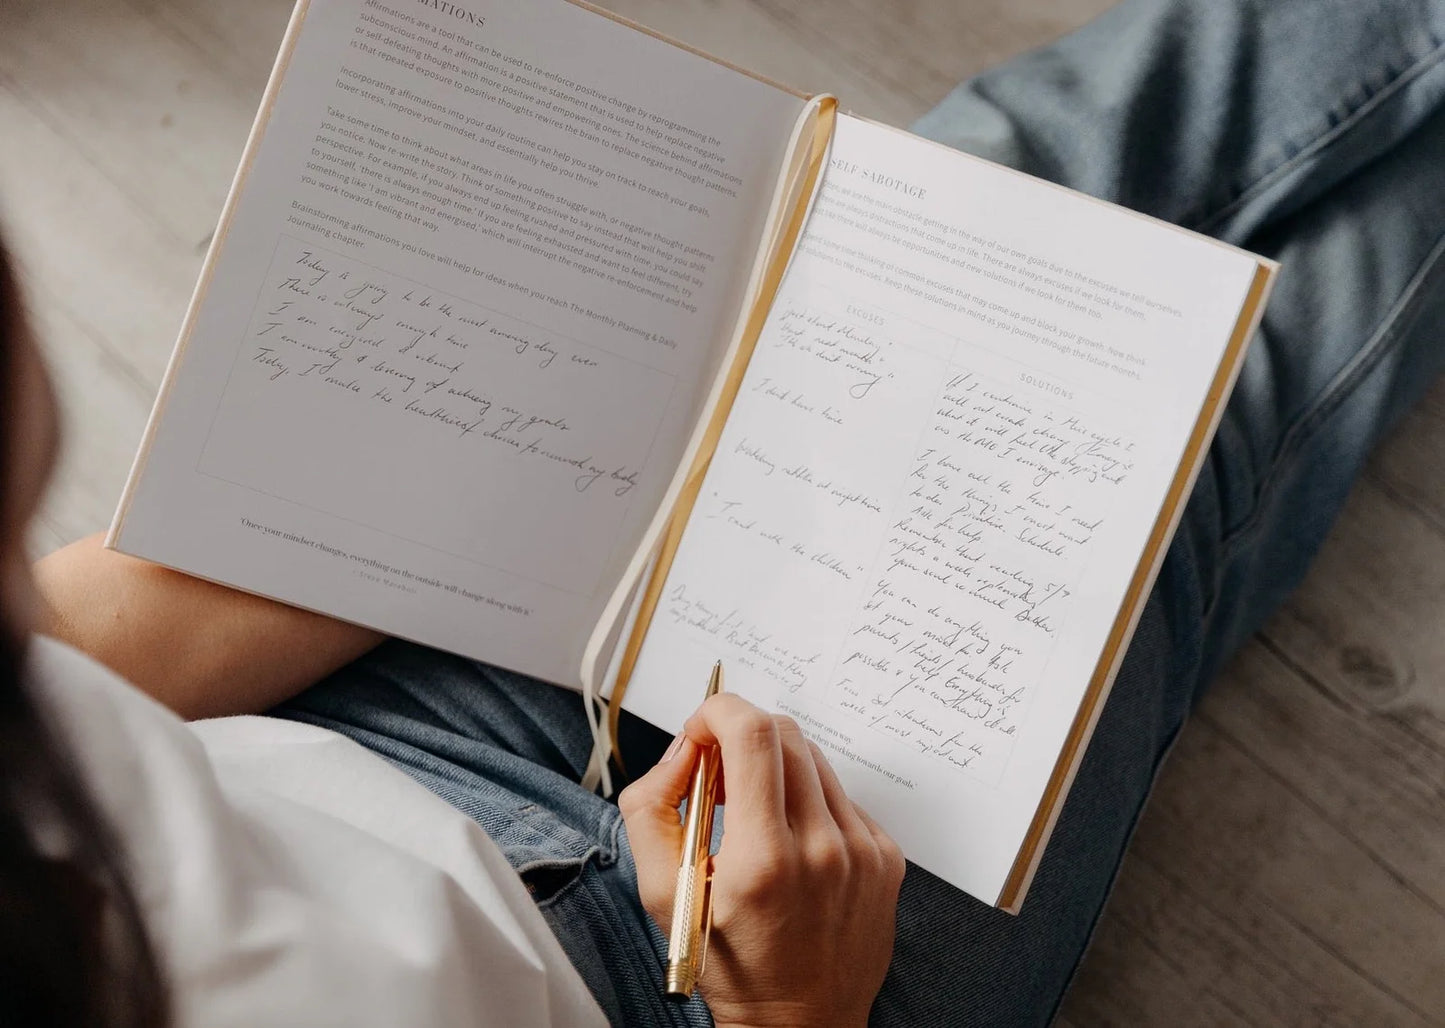 MATIONS
Affirmations are a tool that can be used to re-enforce positive change by reprogramming the
subconscious mind. An affirmation is a positive statement that is used to help replace negative
or self-defeating thoughts with more positive and empowering ones. The science behind affirmations
is that repeated exposure to positive thoughts rewires the brain to replace negative thought patterns,
lower stress, improve your mindset, and essentially help you thrive.
Incorporating affirmations into your daily routine can help you stay on track to reach your goals,
Take some time to think about what areas in life you often struggle with, or negative thought patterns
you notice. Now re-write the story. Think of something positive to say instead that will help you shift
perspective. For example, if you always end up feeling rushed and pressured with time, you could say
to yourself, 'there is always enough time.' If you are feeling exhausted and want to feel different, try
something like 'I am vibrant and energised,' which will interrupt the negative re-enforcement and help
you work towards feeling that way.
Brainstorming affirmations you love will help for ideas when you reach The Monthly Planning & Daily
Journaling chapter.
Today is going to be the most amazing day ever
There is always enough time
I am energised & vibrant
I am worthy & deserving of achieving my goals
Today, I make the healthiest choices to nourish my body
'Once your mindset changes, everything on the outside will change along with it.'
- Steve Maraboli
SELF SABOTAGE
we are the main obstacle getting in the way of our own goals due to the excuses we tell ourselves.
are always distractions that come up in life. There are always excuses if we look for them,
just like there will always be opportunities and new solutions if we look for them too.
Spend some time thinking of common excuses that may come up and block your growth. Now think
solutions to the excuses. Keep these solutions in mind as you journey through the future months.
EXCUSES
"Just start Monday"
next month"
don't worry"
I don't have time
Watching at night time
"I can't with the children"
are not
important. But because they
are
SOLUTIONS
If I continue in this cycle I
will not change
what it will feel like
as the I envisage.
I have all the time I need
for the things I most want
to do. Prioritise. Schedule
Ask for help
Remember that reading 5/7
nights a week replenishes
your soul so much better.
You can do anything you
set your mind to. Ask
parents/friends/husbands for
help. Everything is
possible & You
Set intentions for the
week of most important.
'Get out of your own way.
when working towards our goals.'